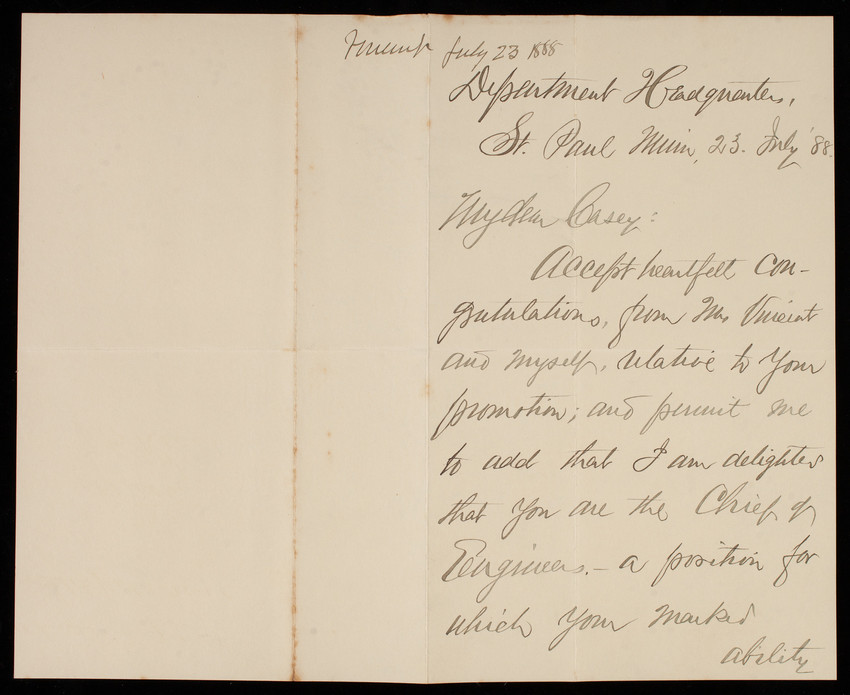 July 23 1888
Department Headquarters,
St. Paul Minn, 23. July '88.
My dear Casey:
Accept heartfelt con-
gratulations, from Mrs Vincent
and myself, relative to your
promotion; and permit me
to add that I am delighted
that you are the Chief of
Engineers. - a position for
which your marked
ability